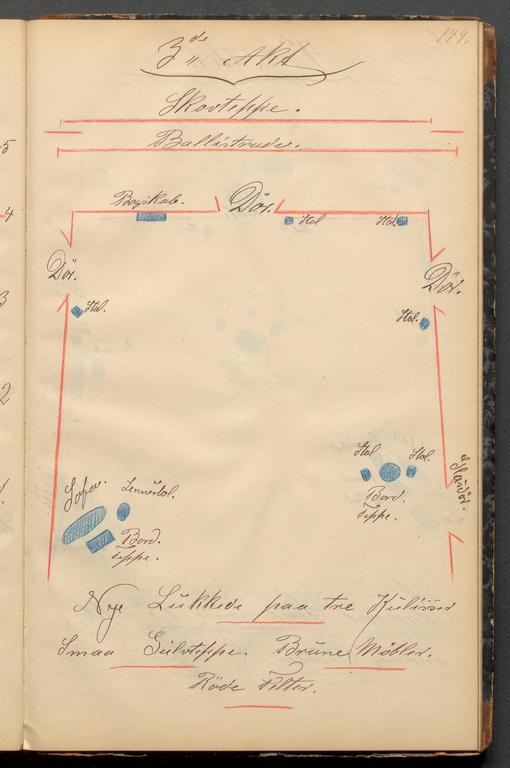 149.
3de Akt
Skovteppe.
Ballistrade.
Bogskab.
Dör.
Stol
Stol.
Dör.
Dör.
Stol.
Stol.
Stol
Stol.
Bord.
Teppe.
Sofa.
Lennestol.
Bord.
Teppe.
Nye Lukkede paa tre Kulisser
Smaa Gulvteppe. Brune Möbler.
Röde Filter.
5
4
3
2